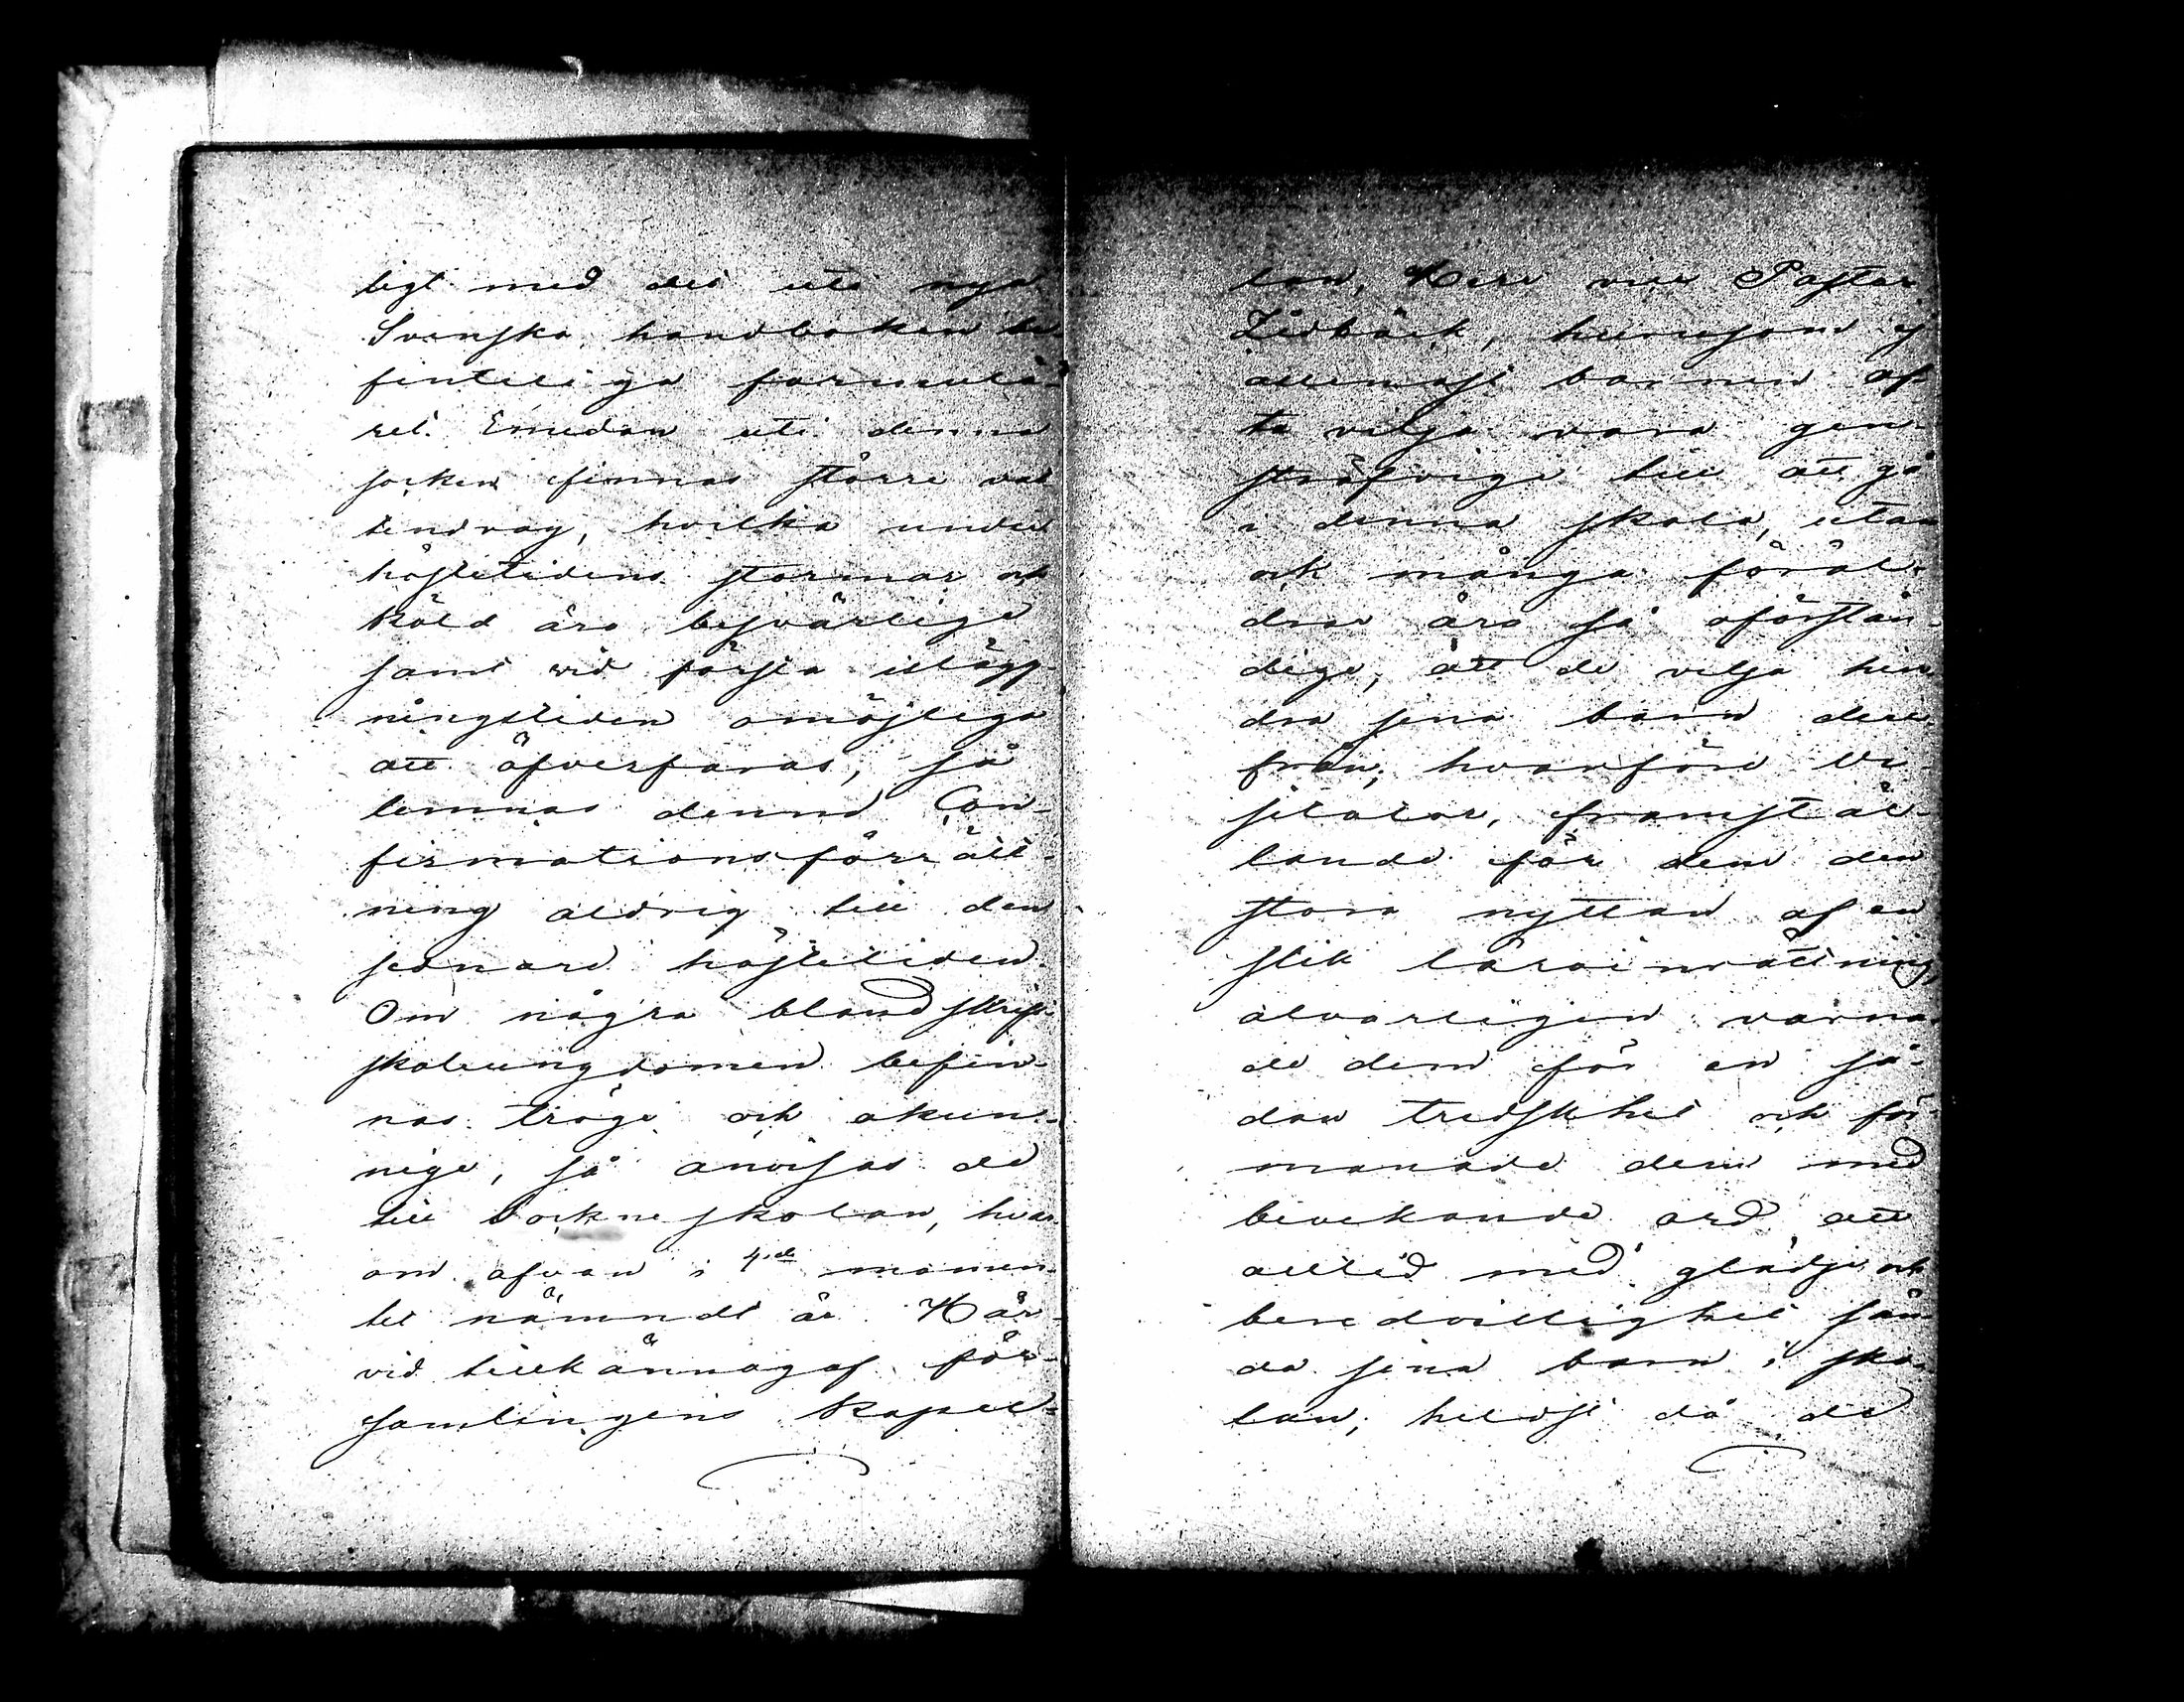 ligt med det uti nya
Svenska handboken be-
finteliga formulä-
ret. Emedan uti denna
socken finnas större vat
tendrag, hvilka under
höstetidens stormar och
köld äro besvärliga
samt vid första islägg-
ningstiden omöjliga
att öfverfaras, så
lemnas denna Con-
firmationsförrätt-
ning aldrig till den
sednare hösttiden.
Om några bland skrift-
skoleungdomen befin-
nas tröge och okun-
nige, så anvisas de
till Sockneskolan, hvar-
om ofvan i 4:de momen-
tet nämndt är. Här-
vid tillkännagaf För-
samlingens Kapel-
lan, Herr vice Pastor
Lidbäck, huruson ej
allenast barnen of-
ta vilja vara gen-
sträfvige till att gå
i denna skola, utan
ock många föräl-
drar äro så oförstån-
dige, att de vilja hin
dra sina barn der-
från, hvarföre Vi-
sitator, framstäl-
lande för dem den
stora nyttan af en
slik läroinrättning,
alvarligen varna-
de dem för en så-
dan tredskhet och för-
manade dem med
bevekande ord att
alltid med glädje och
beredvillighet sän-
da sina barn i sko-
lan, heldst då de